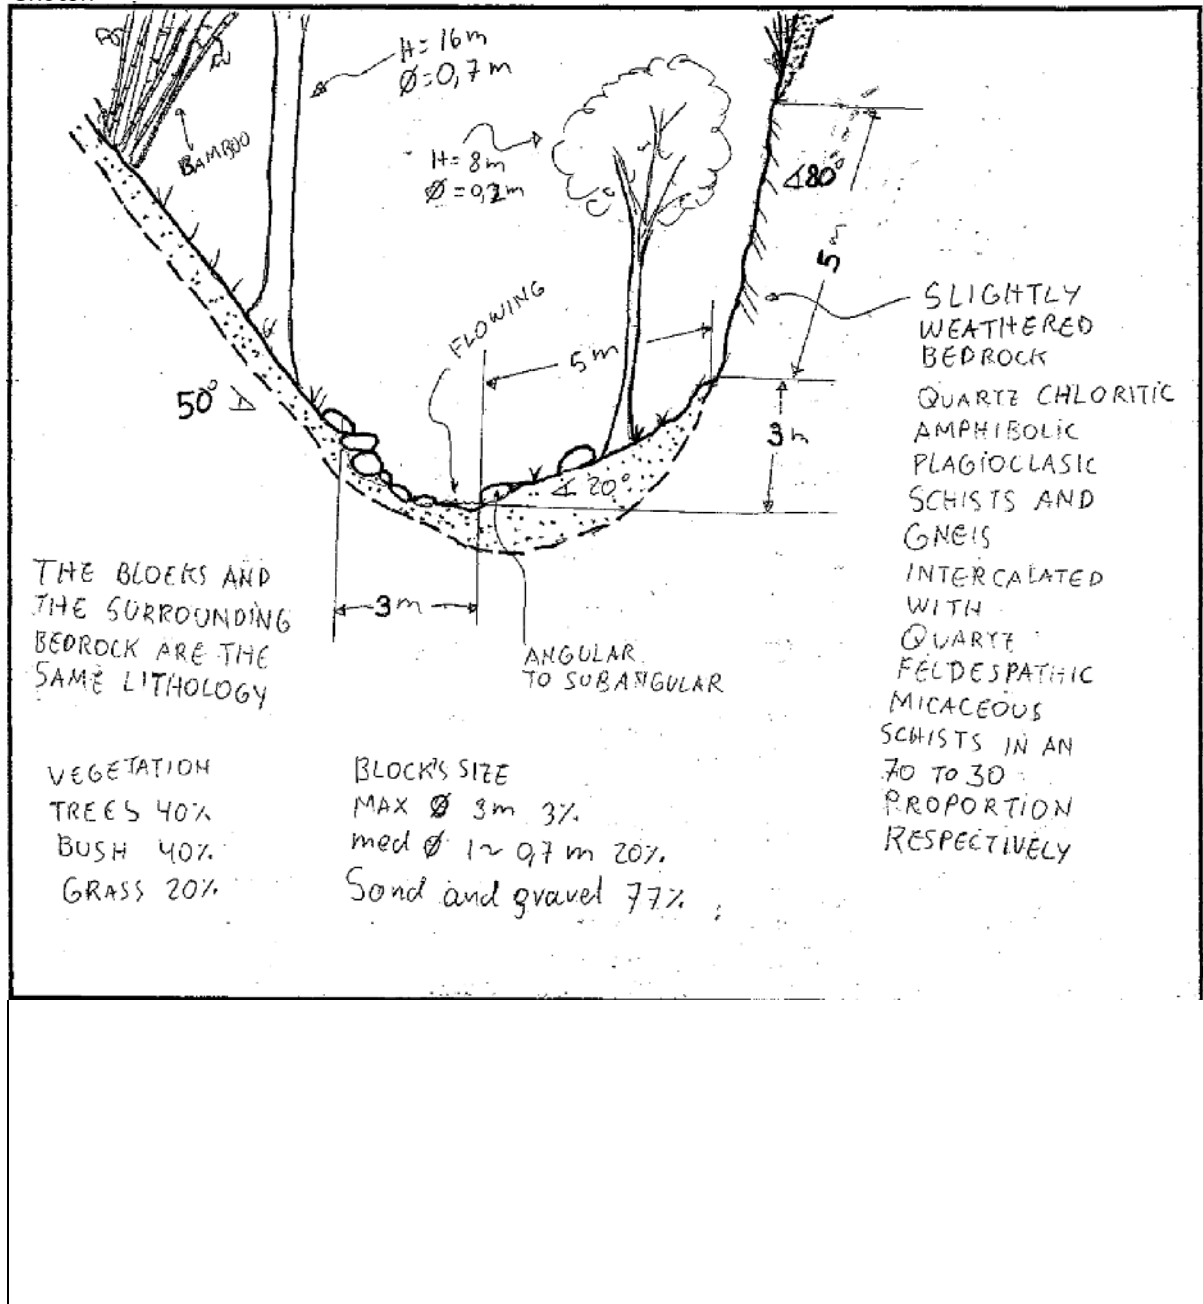 H= 16m
Ø=0,7m
BAMBOO
H= 8m
Ø=0,2m
∡80°
5m
FLOWING
5m
50°
3m
∡ 20°
3m
ANGULAR
TO SUBANGULAR
SLIGHTLY
WEATHERED
BEDROCK
QUARTZ CHLORITIC
AMPHIBOLIC
PLAGIOCLASIC
SCHISTS AND
GNEIS
INTERCALATED
WITH
QUARTZ
FELDESPATHIC
MICACEOUS
SCHISTS IN AN
70 TO 30
PROPORTION
RESPECTIVELY
THE BLOCKS AND
THE SURROUNDING
BEDROCK ARE THE
SAME LITHOLOGY
VEGETATION
TREES 40%
BUSH 40%
GRASS 20%
BLOCK'S SIZE
MAX Ø 3m 3%
med Ø 1~0,7m 20%
Sond and gravel 77%